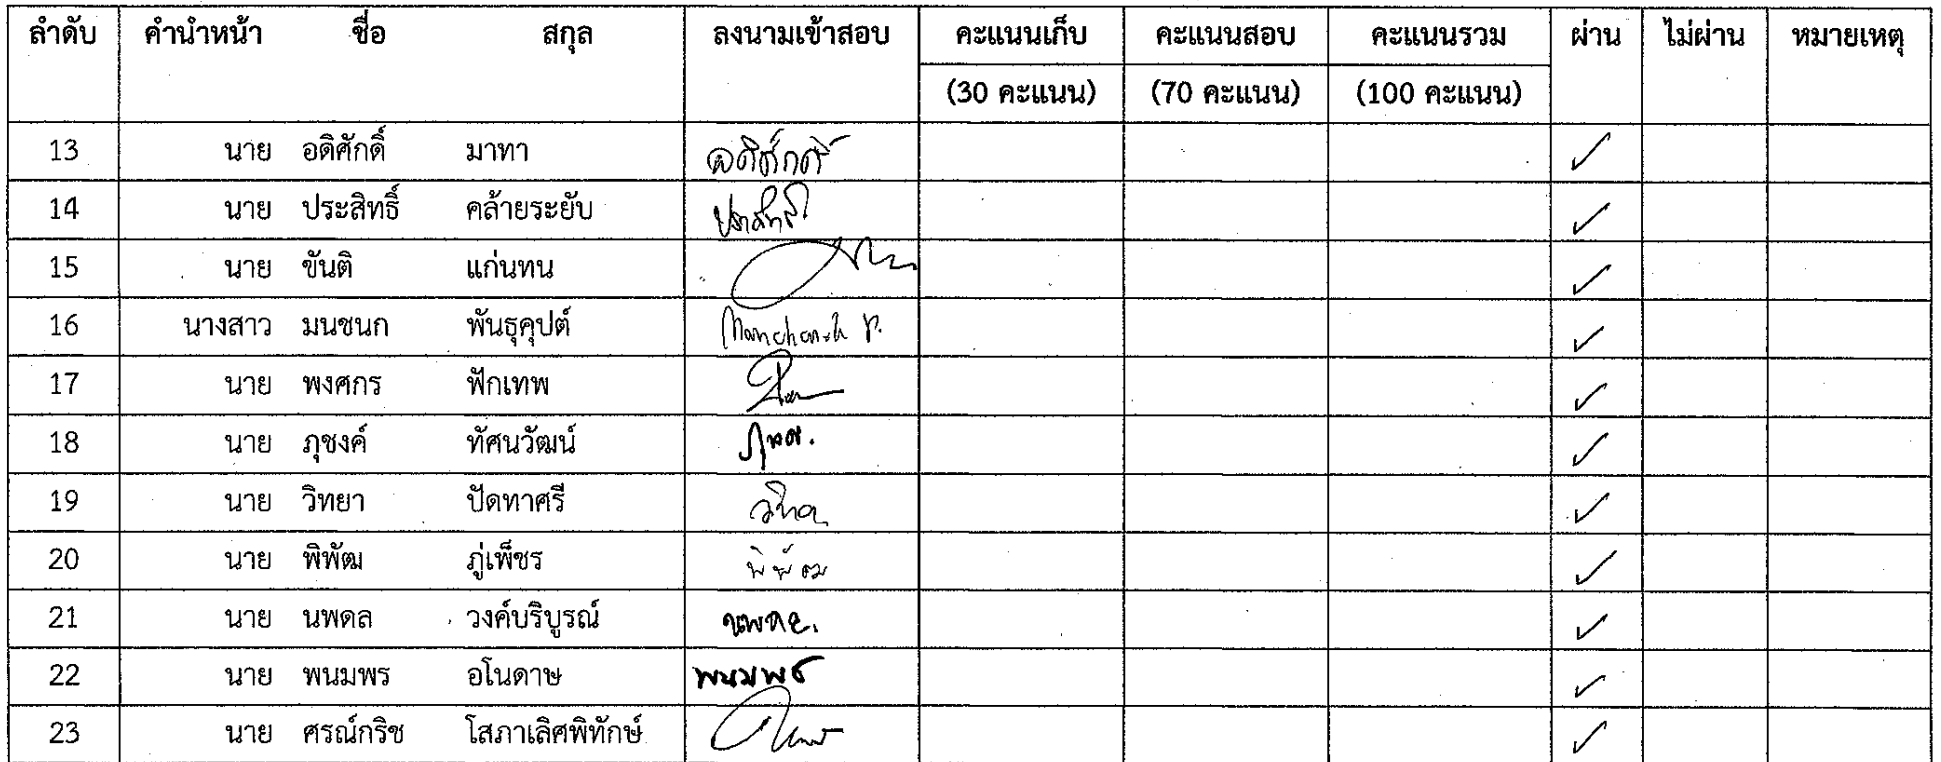 ลำดับ คำนำหน้า ชื่อ สกุล ลงนามเข้าสอบ คะแนนเก็บ คะแนนสอบ คะแนนรวม ผ่าน ไม่ผ่าน หมายเหตุ
(30 คะแนน) (70 คะแนน) (100 คะแนน)
13 นาย อดิศักดิ์ มาทา อดิศักดิ์ ✓
14 นาย ประสิทธิ์ คล้ายระยับ ประสิทธิ์ ✓
15 นาย ขันติ แก่นทน ✓
16 นางสาว มนชนก พันธุคุปต์ Manchanok P. ✓
17 นาย พงศกร ฟักเทพ ✓
18 นาย ภุชงค์ ทัศนวัฒน์ ✓
19 นาย วิทยา ปัดทาศรี ✓
20 นาย พิพัฒ ภู่เพ็ชร พิพัฒ ✓
21 นาย นพดล วงค์บริบูรณ์ นพดล. ✓
22 นาย พนมพร อโนดาษ พนมพร ✓
23 นาย ศรณ์กริช โสภาเลิศพิทักษ์ ✓